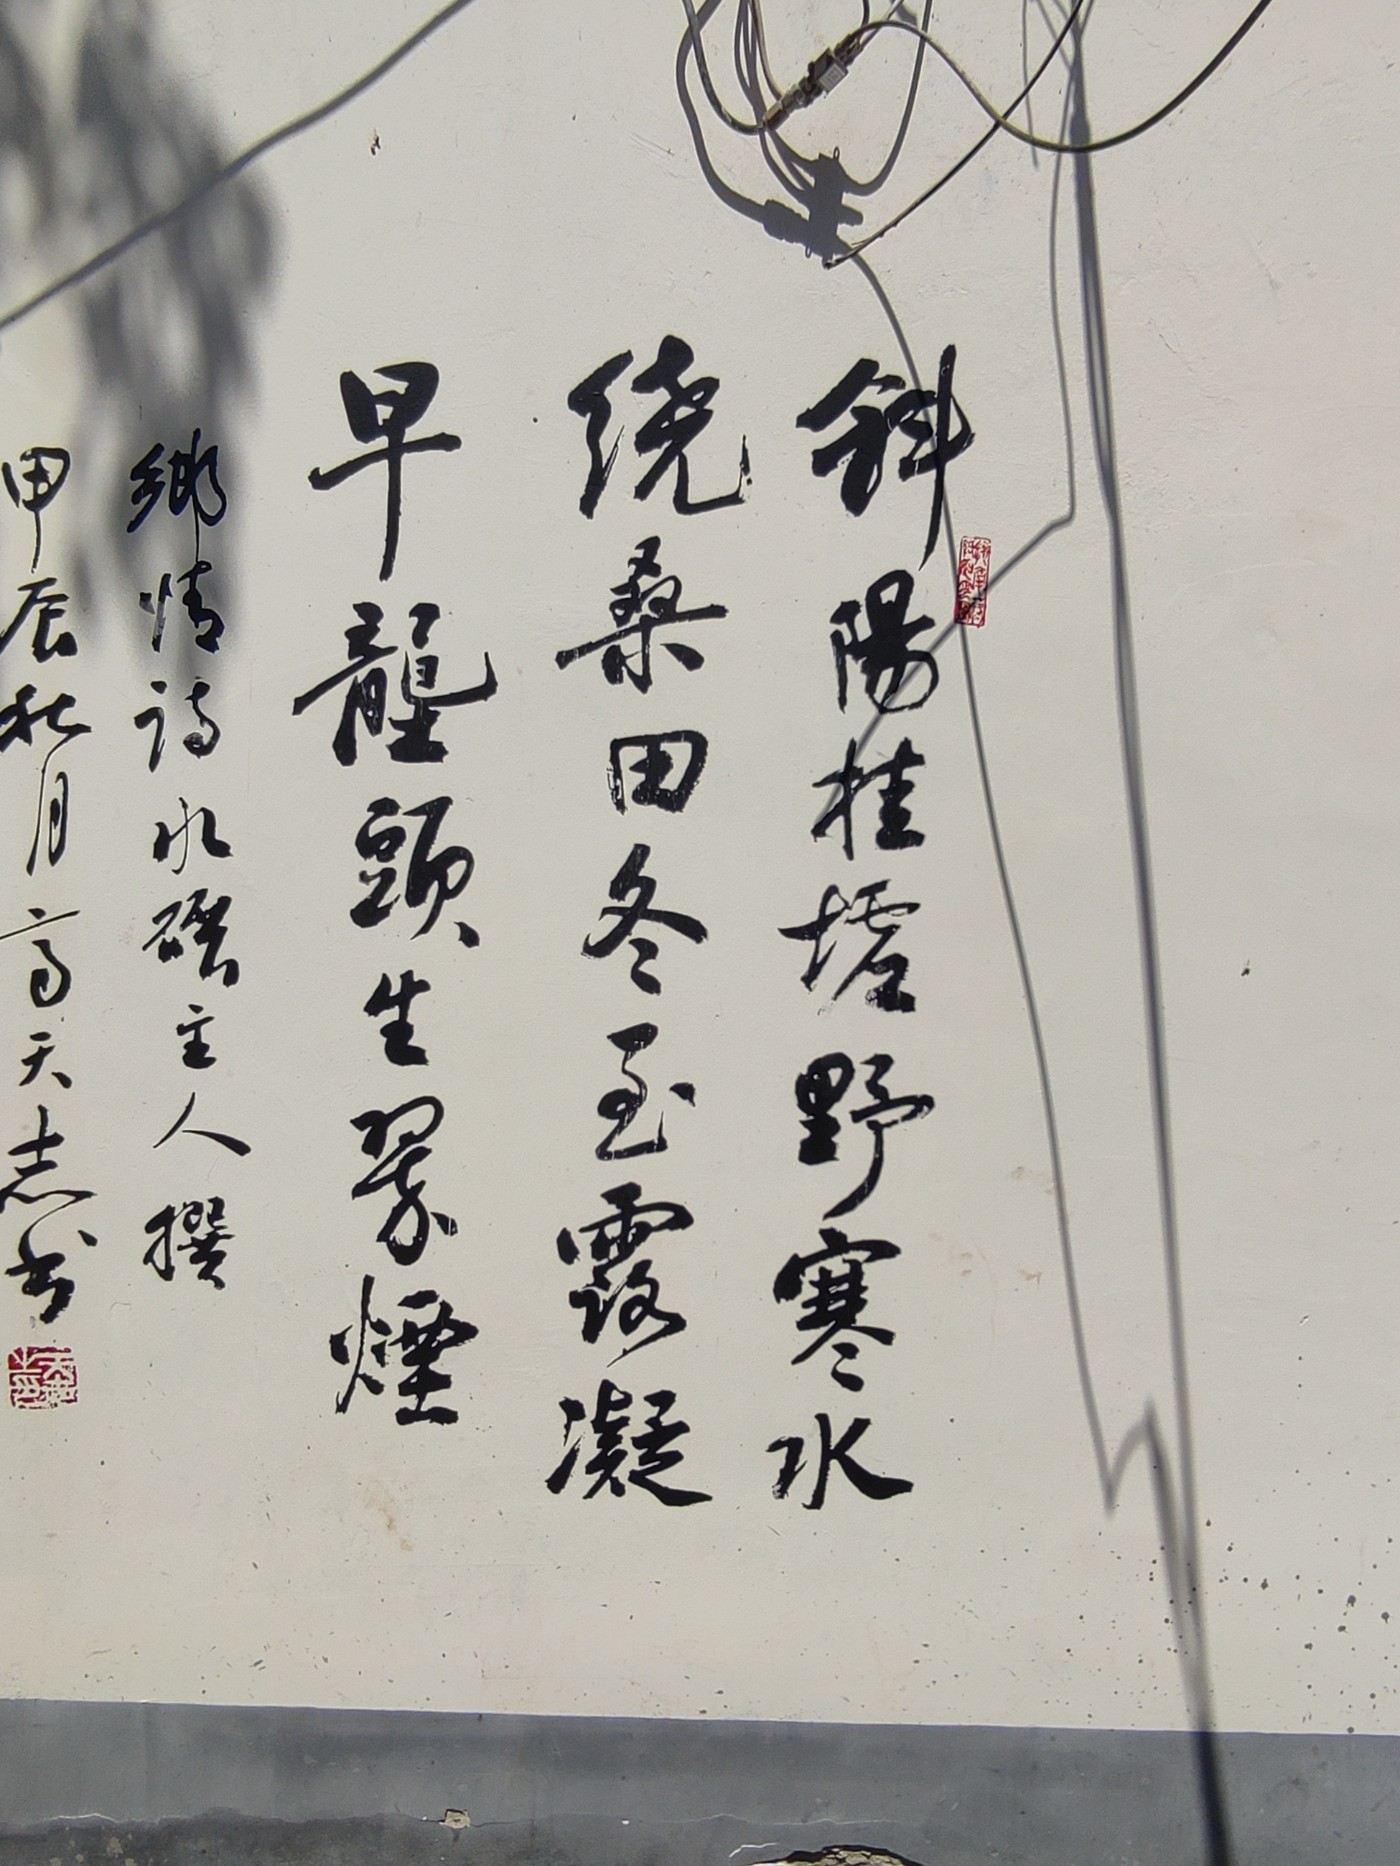 斜陽挂墟野寒水
绕桑田冬至露凝
早壟頭生翠煙
鄉情詩水磨主人撰
甲辰秋月高天志书